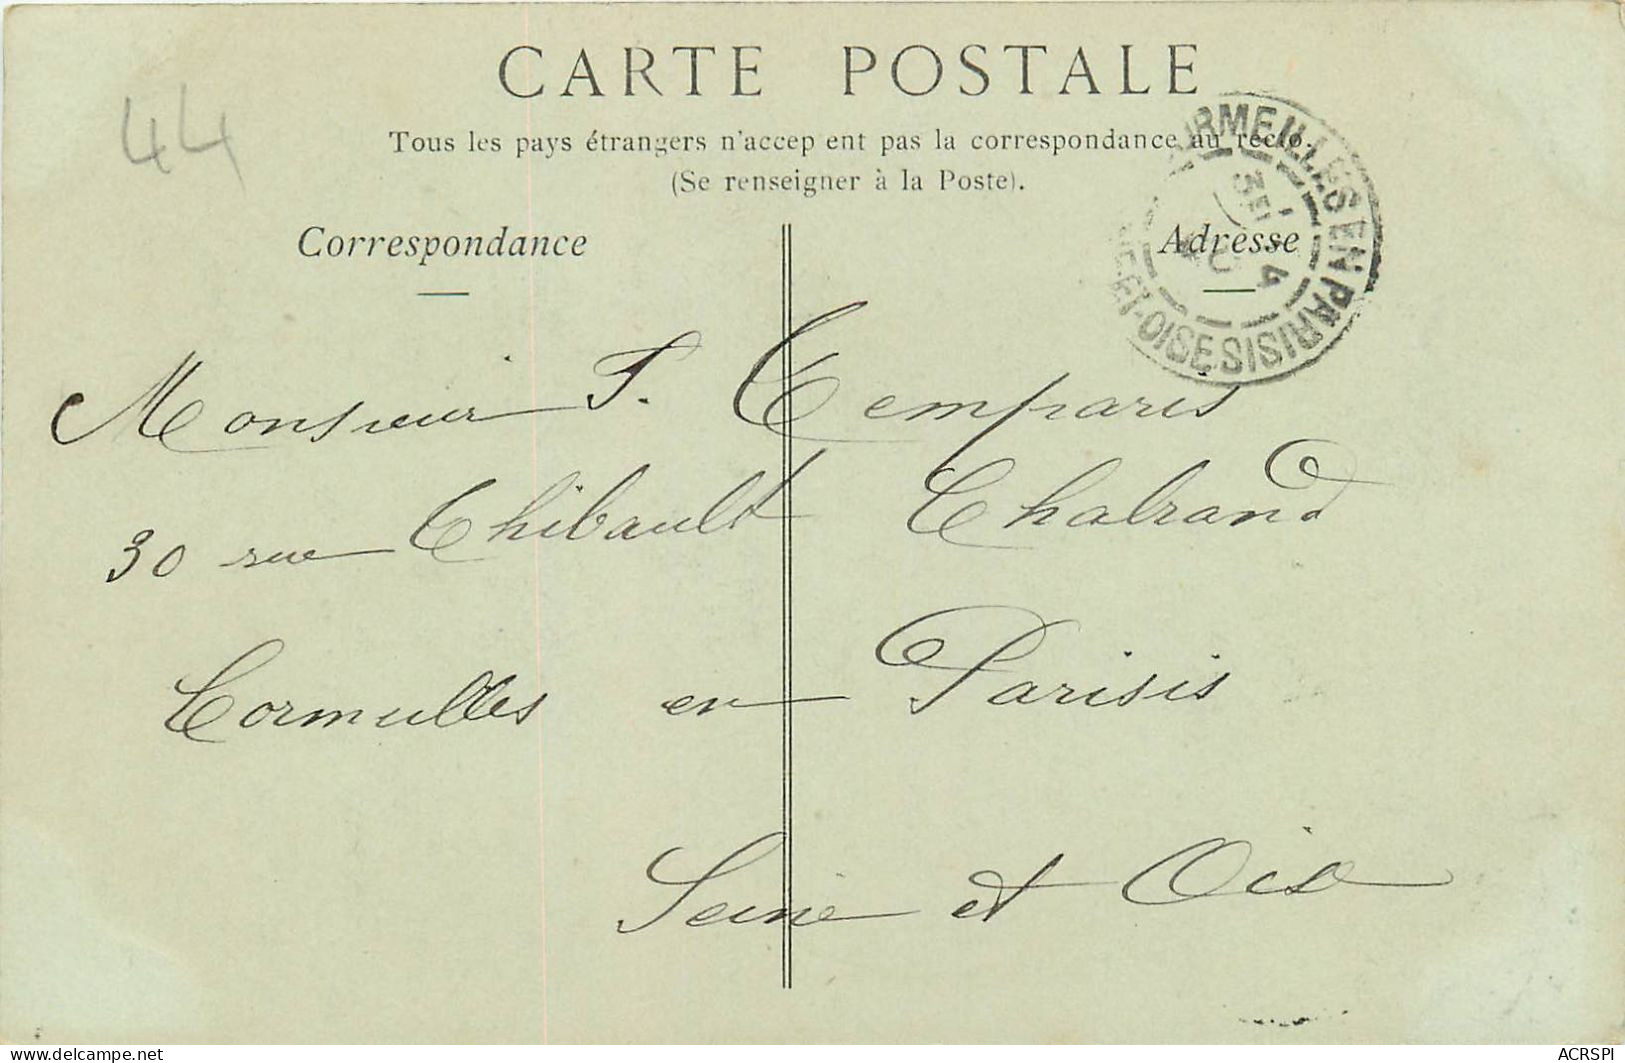 44
CARTE POSTALE
Tous les pays étrangers n'accep ent pas la correspondance au recto.
(Se renseigner à la Poste).
Correspondance
Adresse
RMEILLES EN PARISIS
ET-OISE
Monsieur T. Temparis
30 rue Thibault Chabrand
Cormeilles en Parisis
Seine et Oise
delcampe.net
ACRSPI